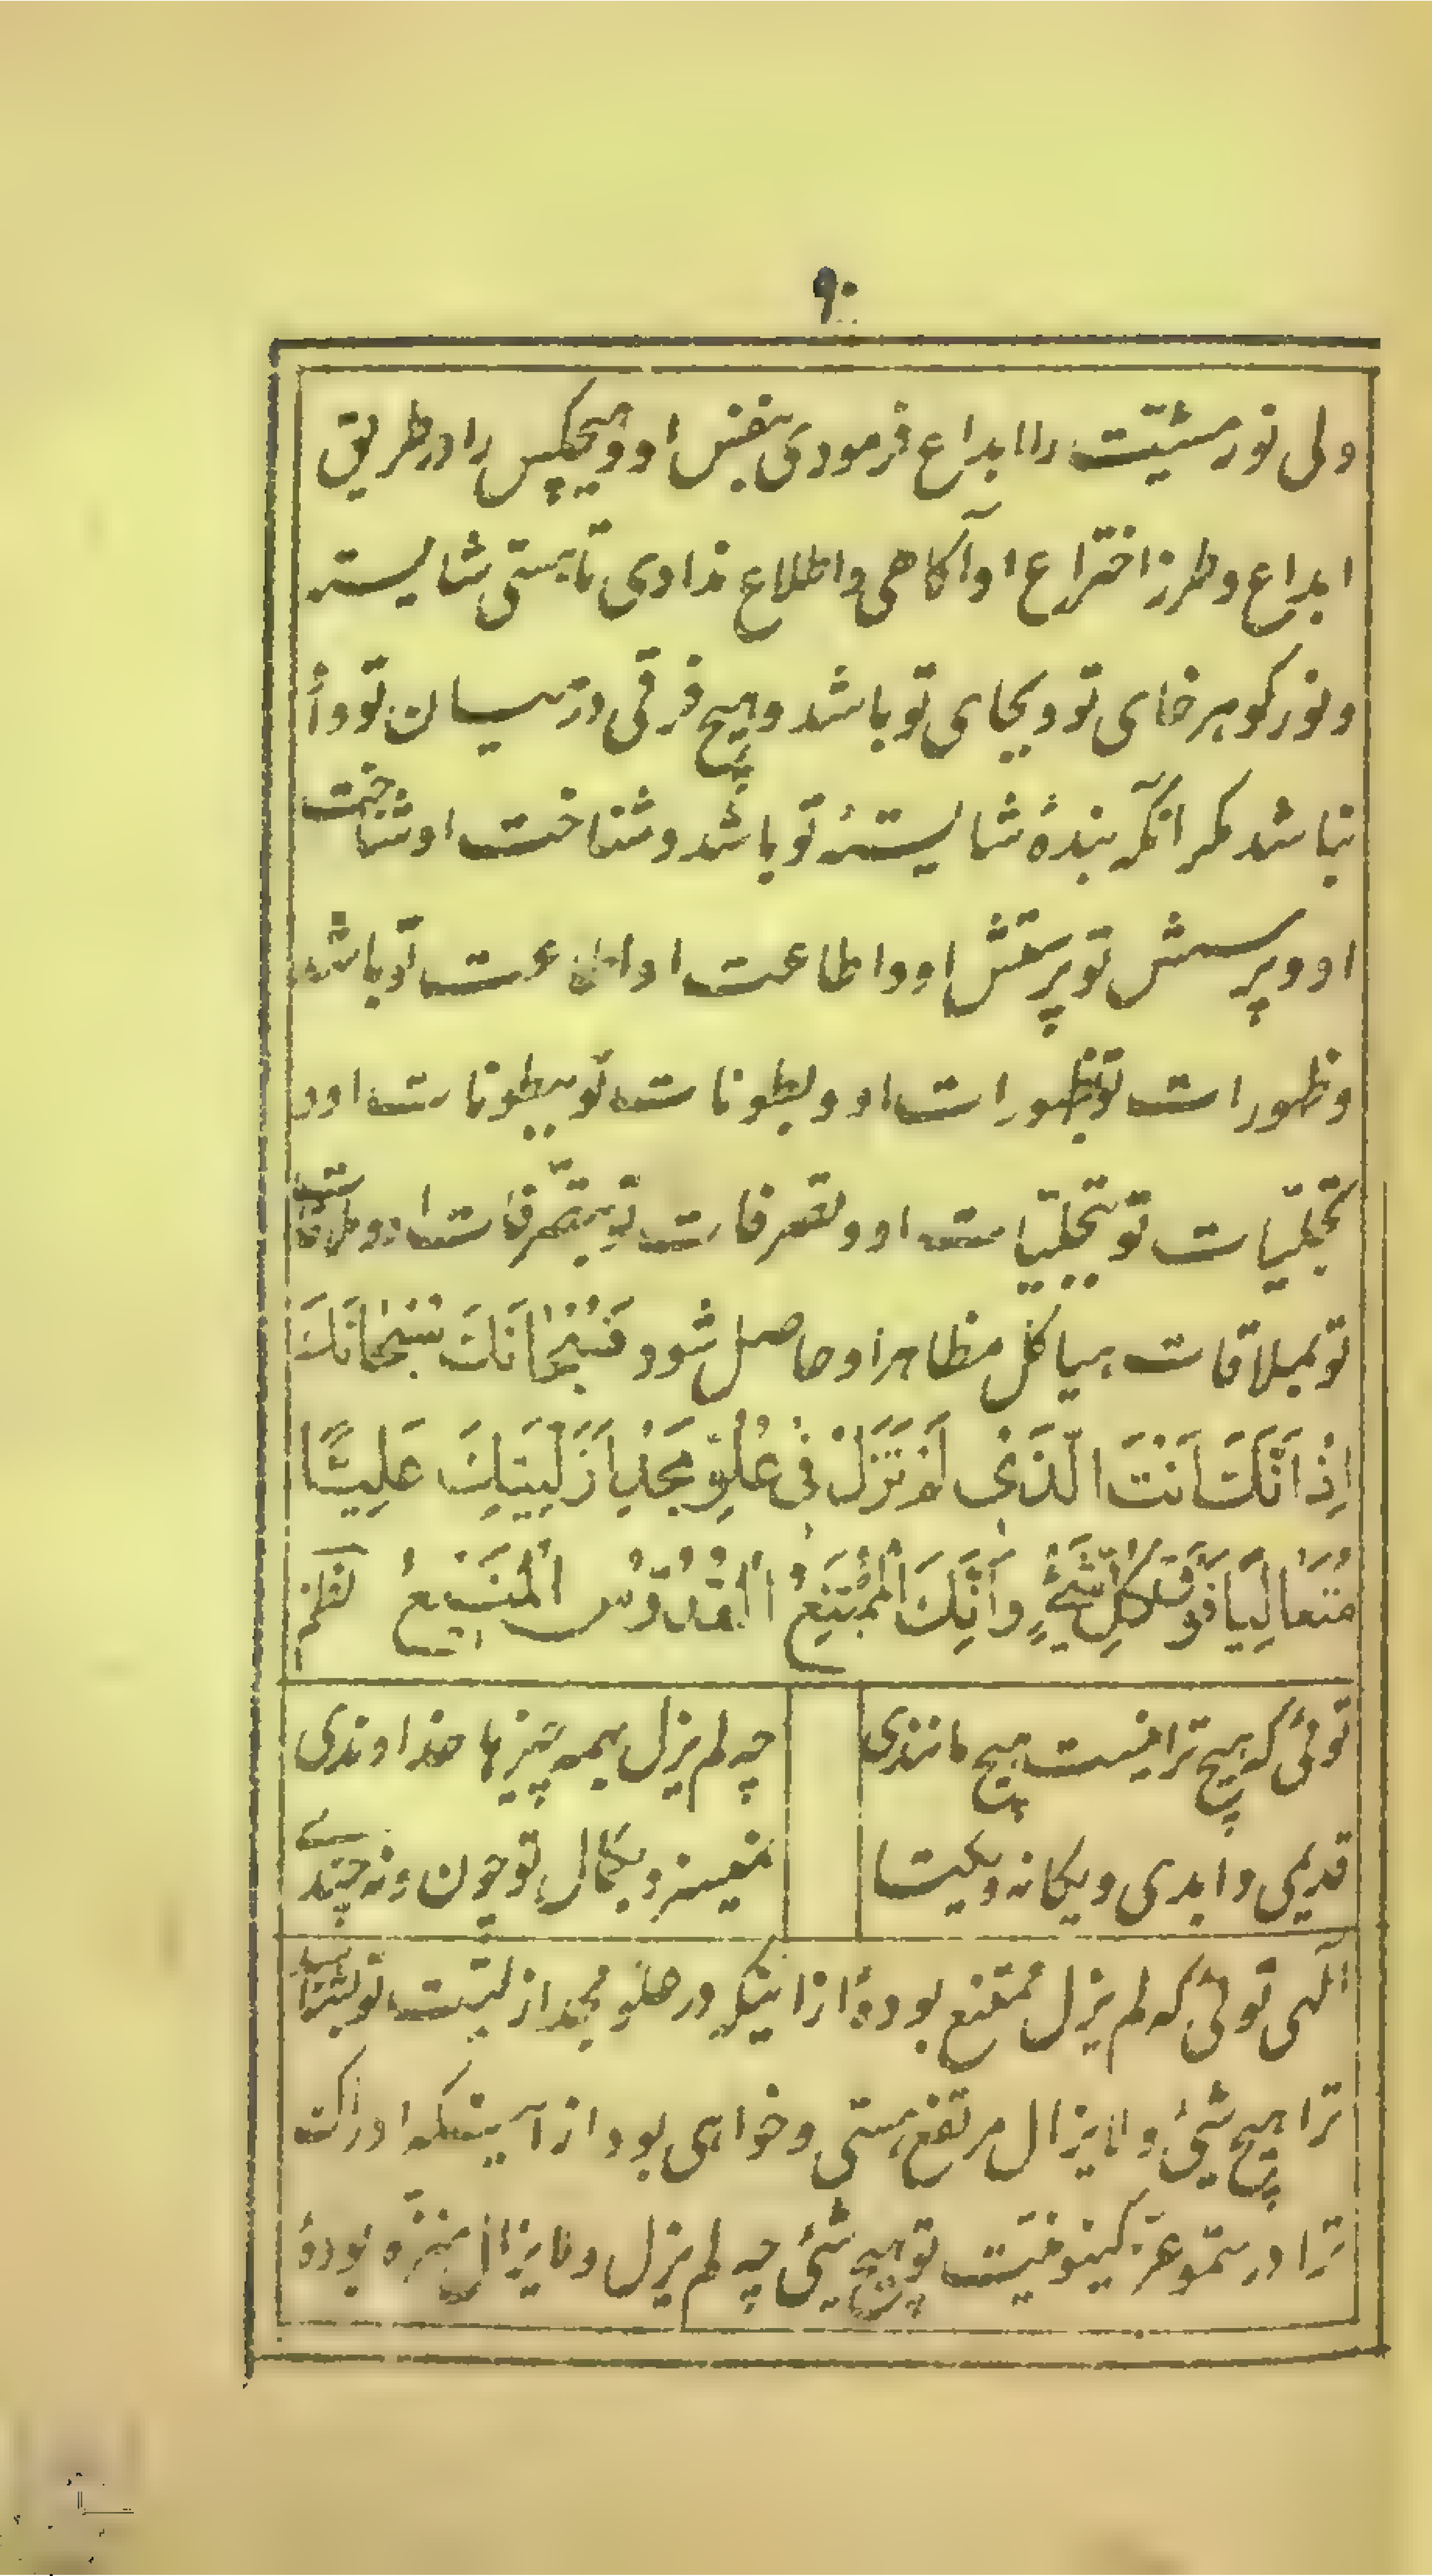 ۹۰
ولی نور مشیّت را ابداع فرمودی بنفس او و هیچکس را در طریق
ابداع و طرز اختراع او آکاهی و اطلاع ندادی تا هستی شایسته
و نور کوهر خای تو و بجای تو باشد و هیچ فرقی در میان تو و أ
نباشد مکر انکه بندهٔ شایستهٔ تو باشد و شناخت او شناخت
او و پرسش تو پرستش او و اطاعت او اطاعت تو باشد
و ظهورات تو بظهورات او و بطونات تو ببطونات او و
تجلّیات تو بتجلّیات او و تصرفات تو بتصرّفات او و ملاقات
تو بملاقات هیاکل مظاهر او حاصل شود فَسُبْحَانَكَ سُبْحَانَكَ
اِذْ اَنَّكَ اَنْتَ الَّذِی لَمْ تَزَلْ فِی عُلُوِّ مَجْدِ اَزَلِیَّتِكَ عَلِیًّا
مُتَعَالِیًا فَوْقَ كُلِّ شَیْءٍ وَ اَنَّكَ اَنْتَ الْمُمْتَنِعُ الْقُدُّوسُ الْمَنِیعُ نظم
توئی که هیچ ترا نیست هیچ مانندی چه لم یزل بهمه چیزها خداوندی
قدیمی و ابدی و یکانه و یکیتا و بکمال تو چون و نه چندی
الهی توئی که لم یزل ممتنع بودهٔ از اینکه در علو مجد ازلیّت تو بشناسد
ترا هیچ شیٔ و لا یزال مرتفع هستی و خواهی بود از اینکه ادراک
ترا در سموّ عزّ کینونیّت تو هیچ شیٔ چه لم یزل و لا یزال منزّه بودهٔ